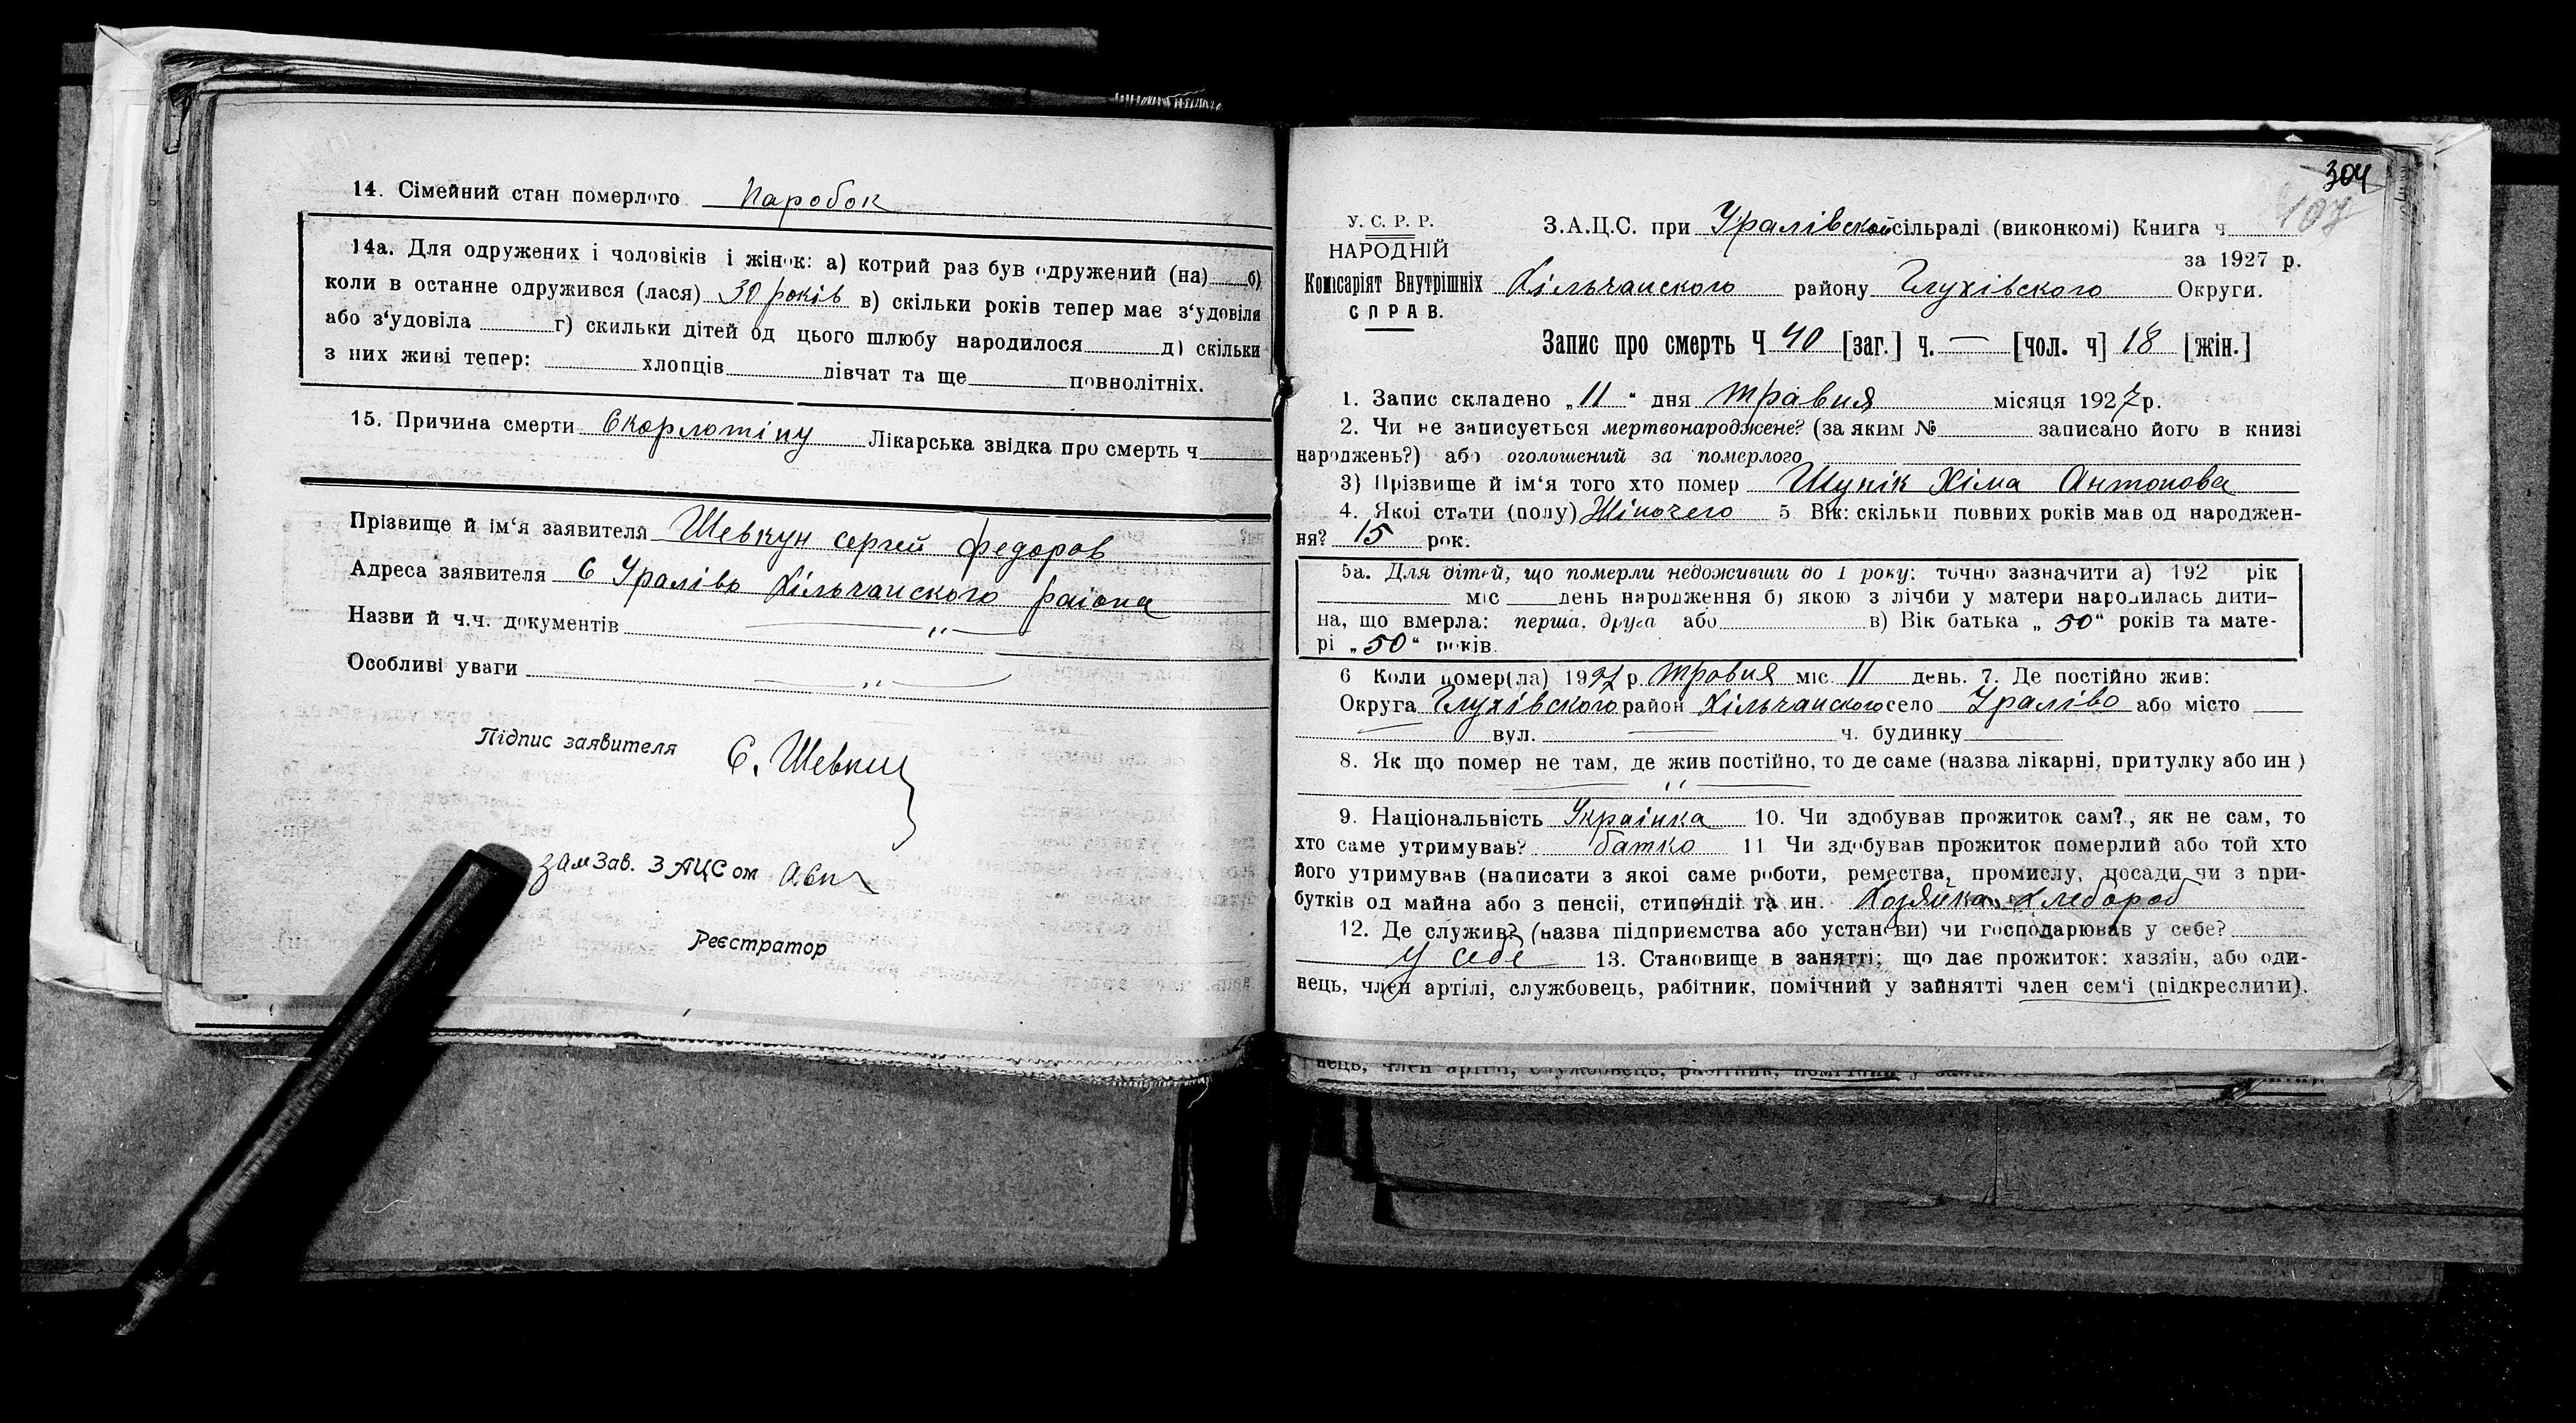 14. Сімейний стан померлого Паробок
14а. Для одружених і чоловіків і жінок: а) котрий раз був одружений (на) б)
коли в останне одружився (лася) 30 років в) скільки років тепер має з‘удовіля
або з‘удовіла г) скильки дітей од цього шлюбу народилося д) скільки
з них живі тепер: хлопців дівчат та ще повнолітніх.
15. Причина смерти Скорлотіну Лікарська звідка про смерть ч
Прізвище й ім‘я заявителя Шевкун сергій федоров
Адреса заявителя С Ураліво Хільчанского района
Назви й ч.ч. документів „
Особливі уваги „
Підпис заявителя С. Шевкун
зам Зав. ЗАЦС ом
Реєстратор
304
107
У. С. Р. Р.
НАРОДНІЙ
Комісаріят Внутрішніх
СПРАВ.
З.А.Ц.С. при Уралівской сільраді (виконкомі) Книга ч
за 1927 р.
Хільчанского району Глухівского Округи.
Запис про смерть Ч 40 [заг.] ч. — [чол. ч] 18 [жін.]
1. Запис складено „11“ дня травня місяця 1927 р.
2. Чи не записується мертвонароджене? (за яким № записано його в книзі
народжень?) або оголошений за померлого
3) Прізвище й ім‘я того хто помер Шупік Хіма Антонова
4. Якої стати (полу) Жіночего 5 Вік: скільки повних років мав од народжен-
ня? 15 рок.
5а. Для дітей, що померли недоживши до 1 року: точно зазначити а) 192 рік
міс день народження б) якою з лічби у матери народилась дити-
на, що вмерла: перша, друга або в) Вік батька „50“ років та мате-
рі „50“ років.
6 Коли помер(ла) 1927 р. травня міс. 11 день. 7. Де постійно жив:
Округа Глухівского район Хільчанского село Ураліво або місто
вул. ч. будинку
8. Як що помер не там, де жив постійно, то де саме (назва лікарні, притулку або ин )
„
9. Національність Українка 10. Чи здобував прожиток сам?, як не сам, то
хто саме утримував? батко 11 Чи здобував прожиток померлий або той хто
його утримував (написати з якоі саме роботи, ремества, промислу, посади чи з при-
бутків од майна або з пенсіі, стипендіі та ин. Хозяйка Хлебороб
12. Де служив? (назва підприємства або установи) чи господарював у себе?
У себе 13. Становище в занятті; що дає прожиток: хазяїн, або оди-
нець, член артілі, службовець, рабітник, помічний у зайнятті член сем‘ї (підкреслити).